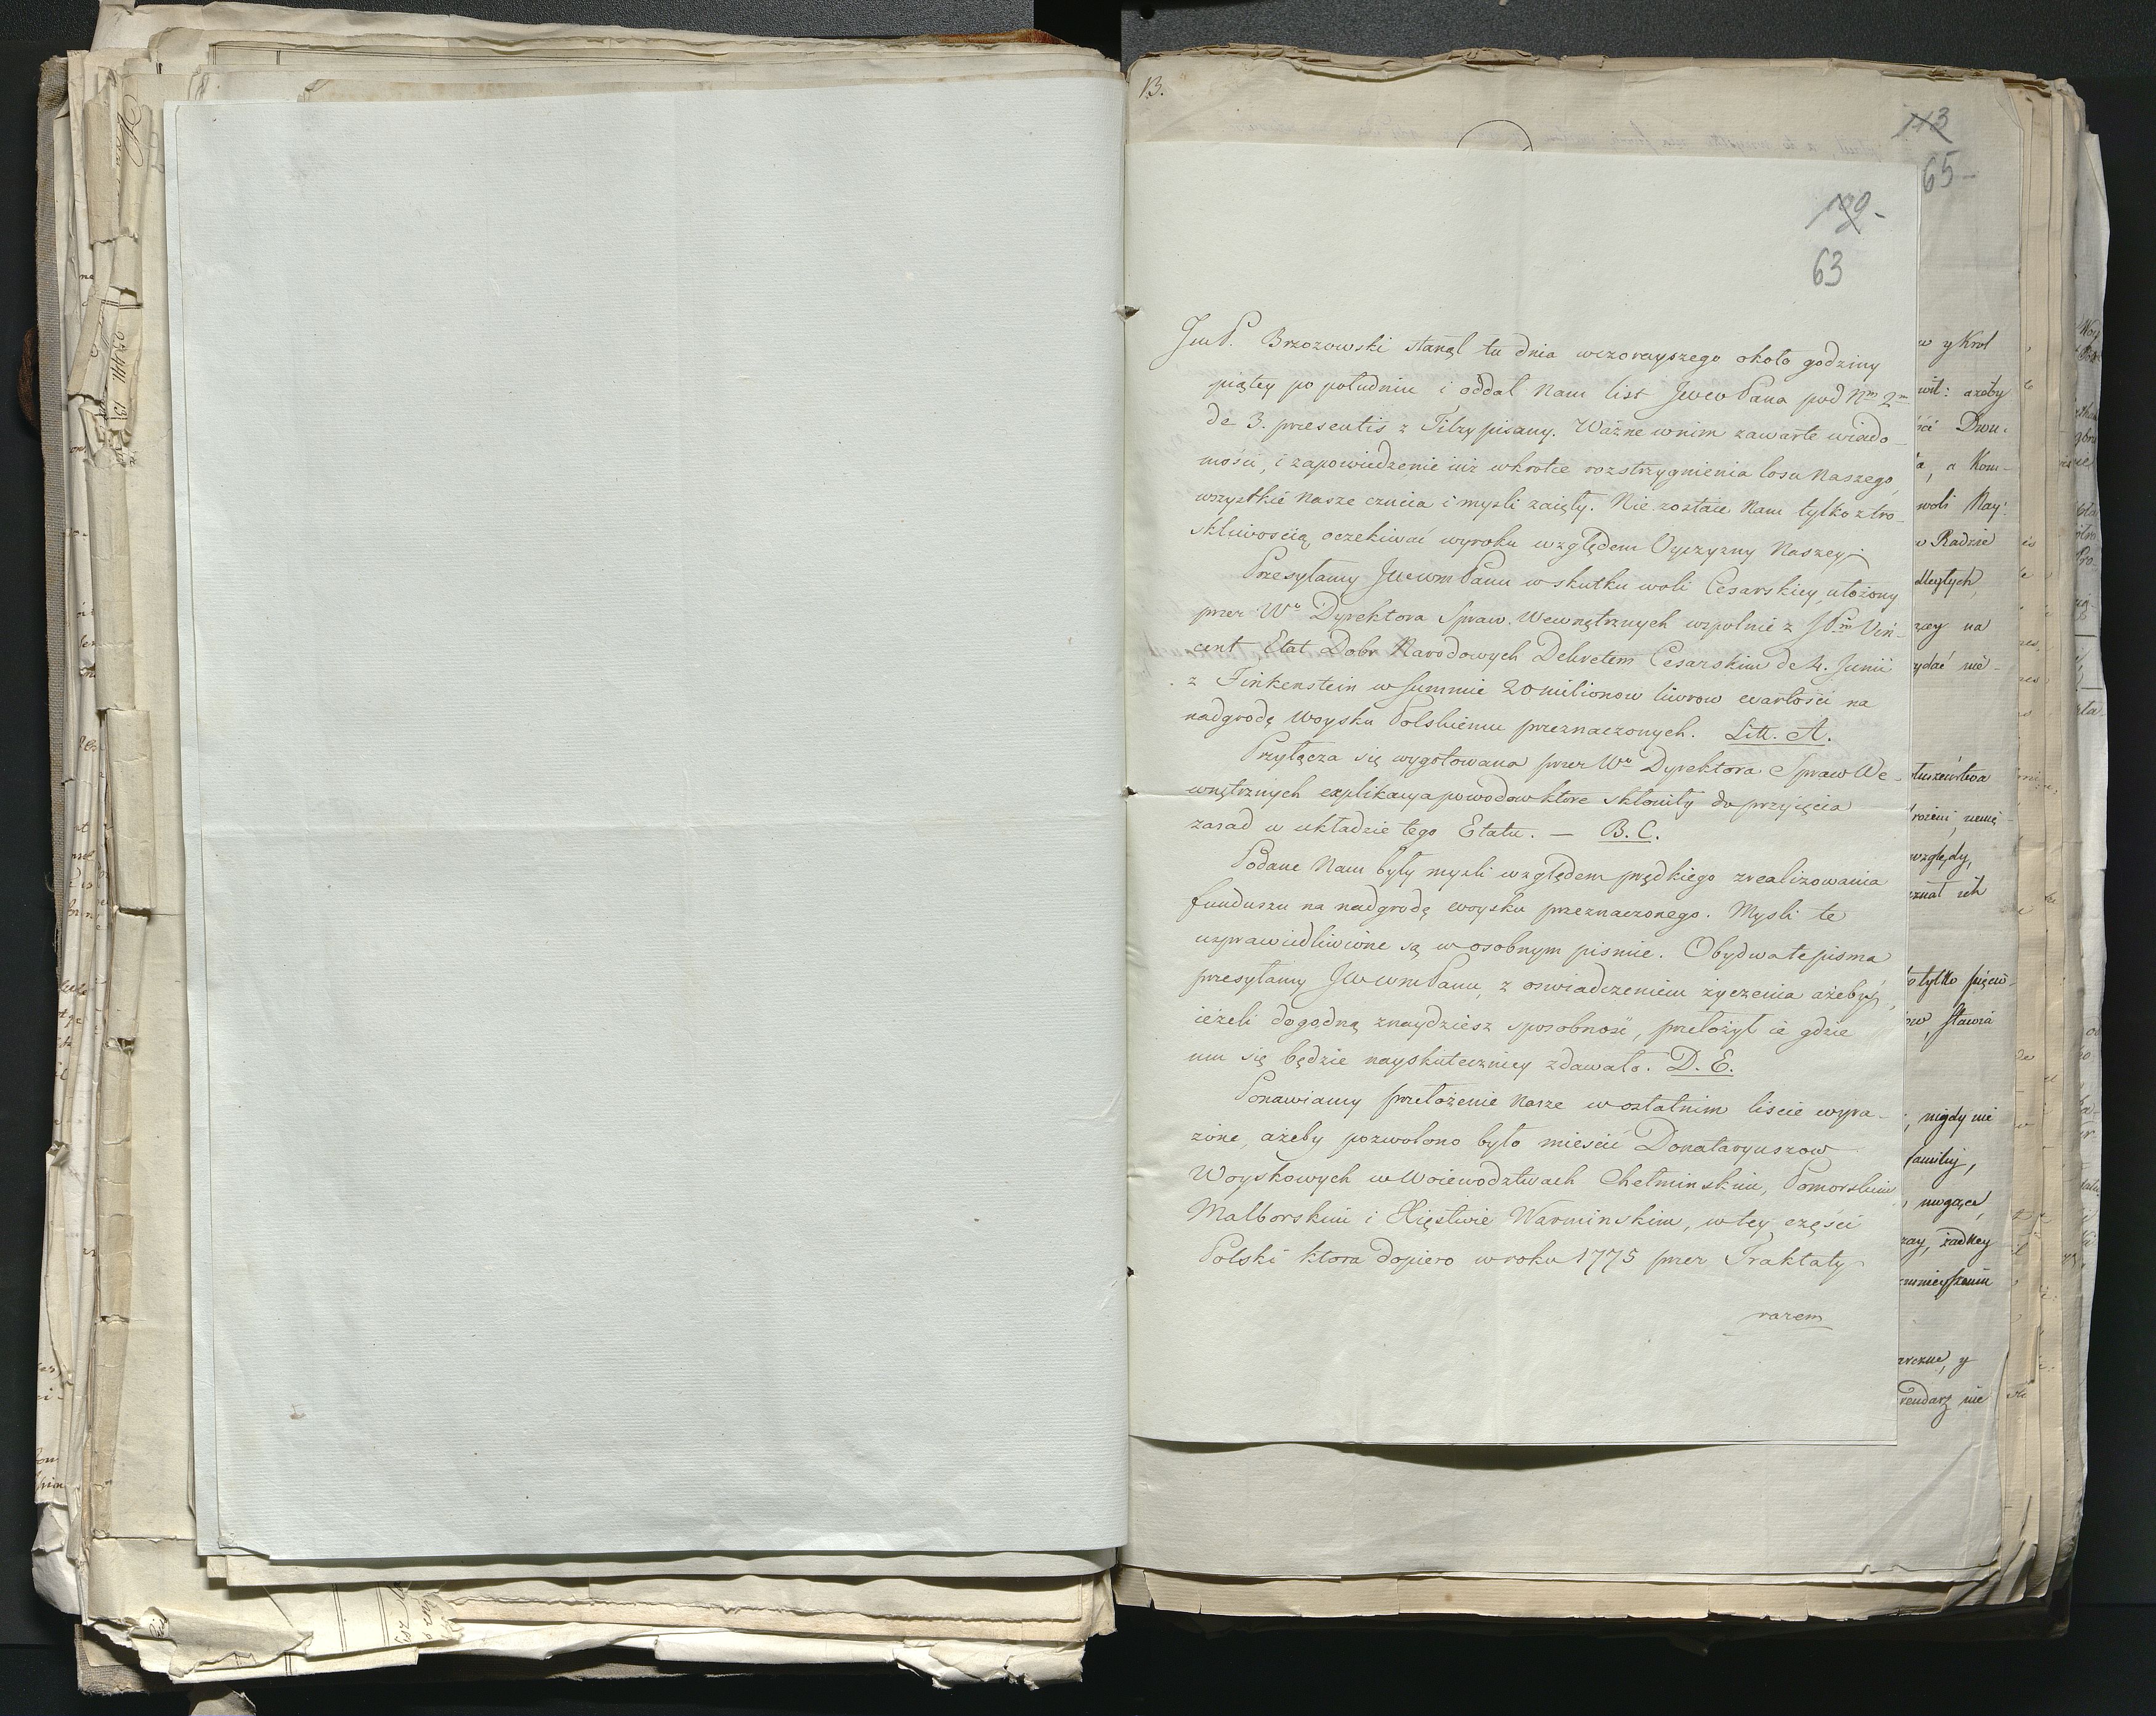 13.
113
65-
129-
63
JmP. Brzozowski stanął tu dnia wczorayszego około godziny
piątey po południu i oddał Nam list JWWPana pod Nm 2m
de 3. presentis z Tilzy pisany. Ważne w nim zawarte wiado-
mości, i zapowiedzenie iuż wkrotce rozstrzygnienia losu Naszego,
wszystkie Nasze czucia i mysli zaięły. Nie zostaie Nam tylko z tro-
skliwością oczekiwać wyroku względem Oyczyzny Naszey.
Przesyłamy JWWmPanu w skutku woli Cesarskiey, ułożony
przez Wo Dyrektora Spraw Wewnętrznych wspolnie z JPm Vin-
cent Etat Dobr Narodowych Dekretem Cesarskim de 4. Junii
z Finkenstein w summie 20 milionow liwrow wartości na
nadgrodę Woysku Polskiemu przeznaczonych. Litt. A.
Przyłącza się wygotowana przez Wo Dyrektora Spraw We-
wnętrznych explikacya powodow ktore skłoniły do przyięcia
zasad w układzie tego Etatu. — B. C.
Podane Nam były mysli względem prędkiego zrealizowania
funduszu na nadgrodę woysku przeznaczonego. Mysli te
usprawiedliwione są w osobnym pismie. Obydwa te pisma
przesyłamy JWWmPanu, z oswiadczeniem życzenia ażebyś,
ieżeli dogodną znaydziesz sposobność, przełożył ie gdzie
mu się będzie nayskuteczniey zdawało. D. E.
Ponawiamy przełożenie Nasze w ostatnim liscie wyra-
żone, ażeby pozwolono było miescić Donataryuszow
Woyskowych w Woiewodztwach Chełminskim, Pomorskim
Malborskim i Xięstwie Warminskim, w tey części
Polski ktora dopiero w roku 1775 przez Traktaty
razem
w y Krol
wił: ażeby
a, a Kom-
woli Nay:
w Radzie
dległych,
zey na
ydać nie-
względy,
znał ich
tylko pięciu
ow, stawia
, nigdy nie
familij,
, mogące,
zay, żadney
mnieyszeniu
rendarz nie